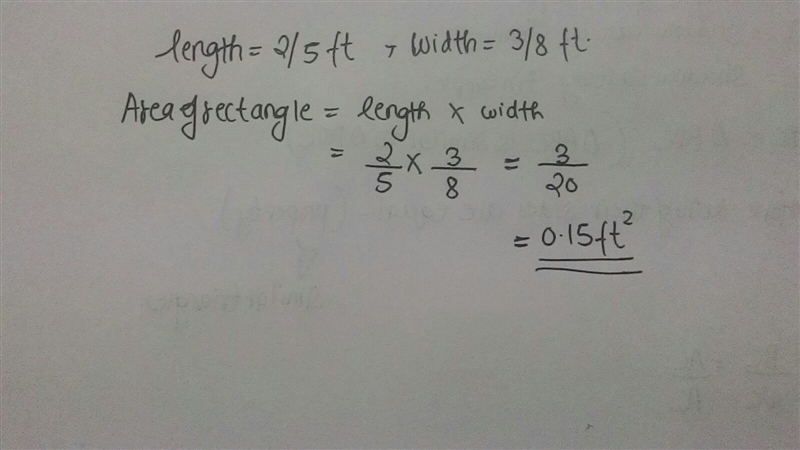 length = 2/5 ft , width = 3/8 ft.
Area of rectangle = length × width
= 2/5 × 3/8 = 3/20
= 0.15 ft²